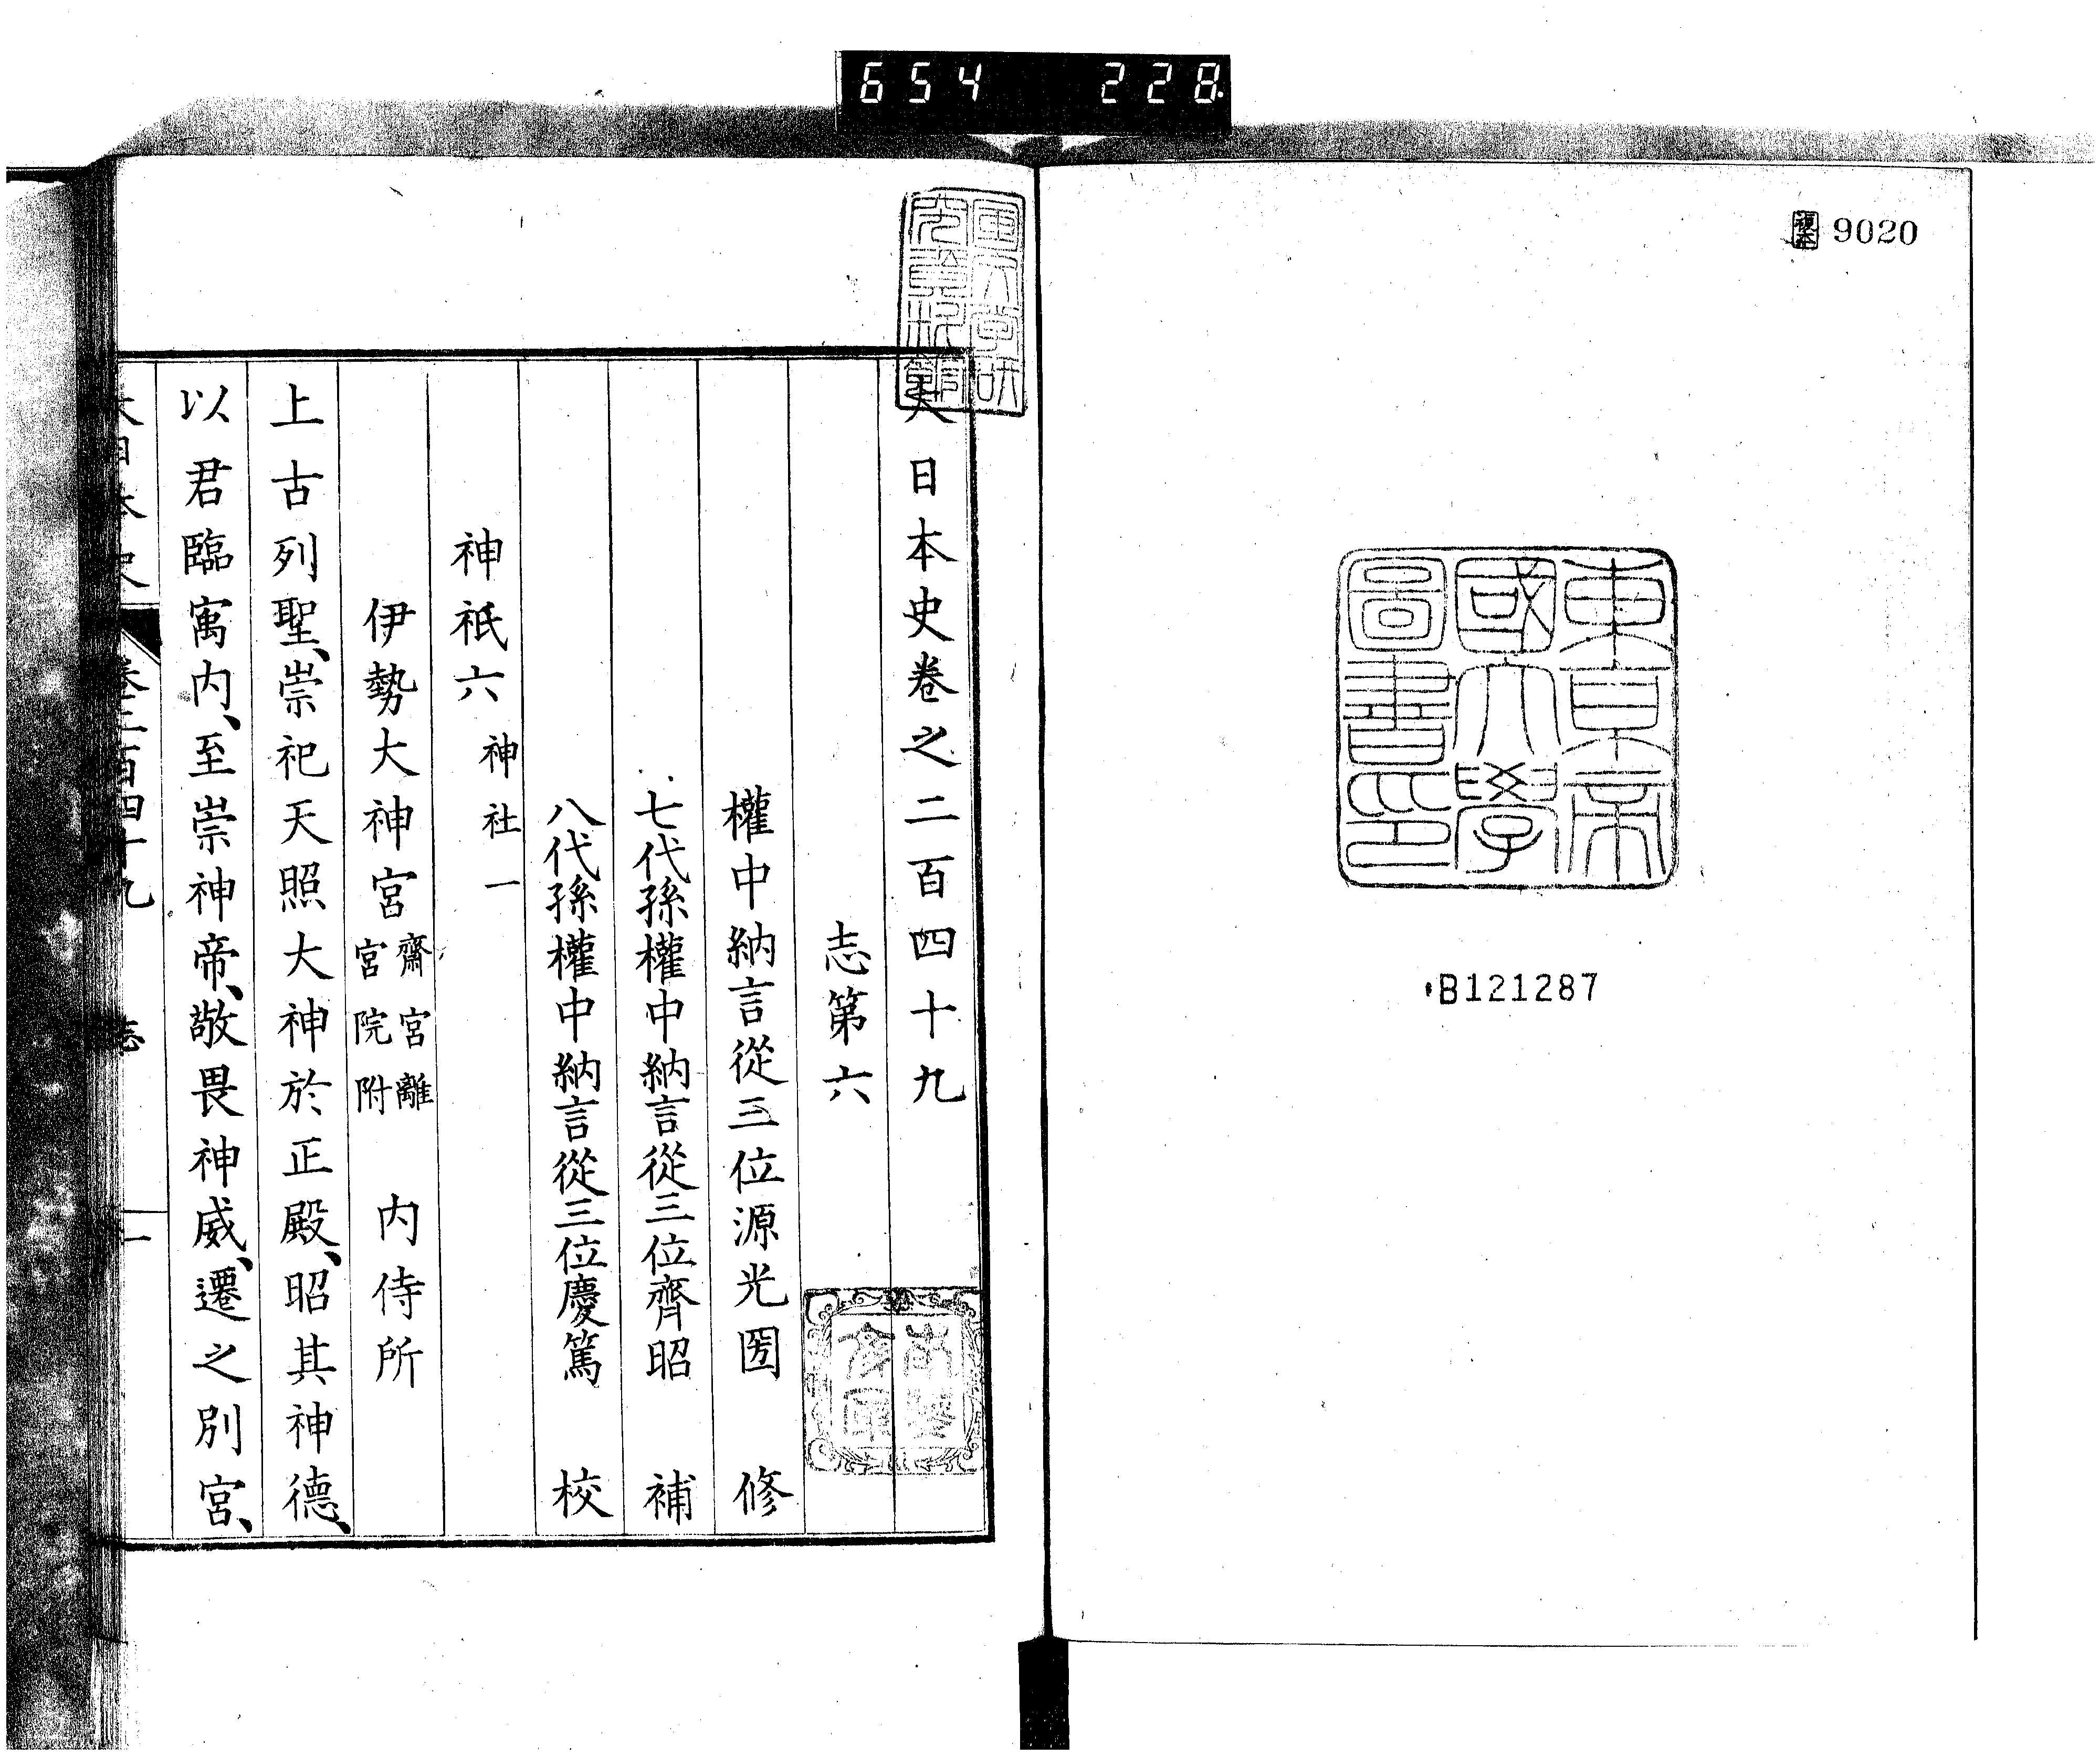 654 228
複本 9020
東京帝
國大學
圖書印
B121287
大日本史卷之二百四十九
志第六
權中納言從三位源光圀 修
七代孫權中納言從三位齊昭 補
八代孫權中納言從三位慶篤 校
神祇六 神社一
伊勢大神宮 齋宮離宮院附 内侍所
上古列聖、崇祀天照大神於正殿、昭其神德、
以君臨寓内、至崇神帝、敬畏神威、遷之別宮、
大日本史 卷二百四十九 志 一